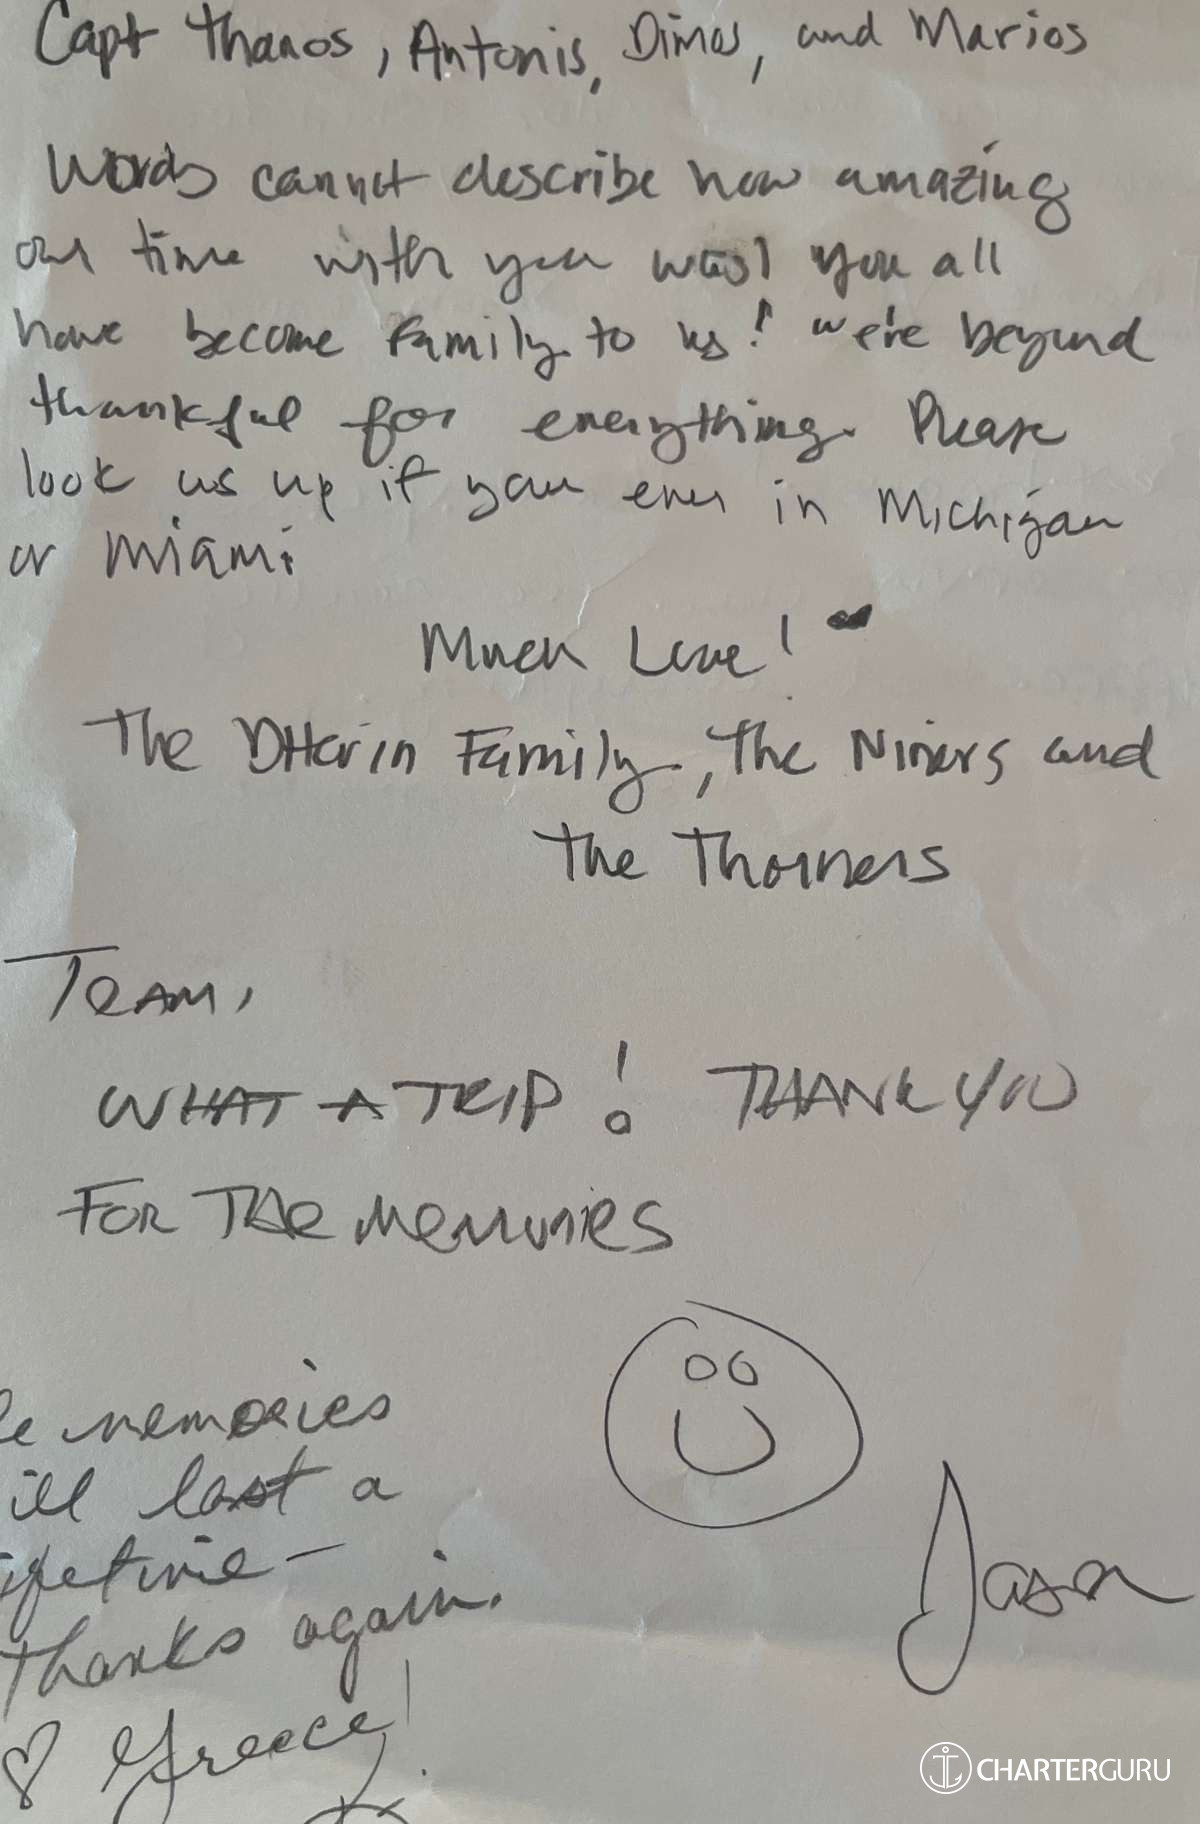 Capt Thanos, Antonis, Dimos, and Marios
Words cannot describe how amazing
our time with you was! You all
have become Family to us! we're beyond
thankful for everything. Please
look us up if your ever in Michigan
or Miami
Much Love!
The Family, The Niners and
The Thorners
TEAM,
WHAT A TRIP! THANK YOU
FOR THE MEMORIES
memories
ill last a
ifetime -
Thanks again.
♡ Greece!
Jason
CHARTERGURU